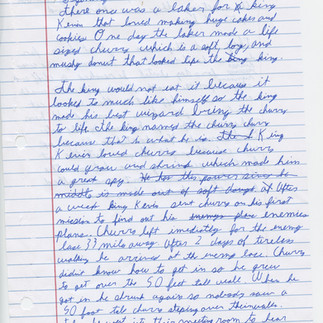 there once was a baker for king
Kevin that loved making huge cakes and
cookies. One day the baker made a life
sized churro which is a soft, log, and
mushy donut that looked like the king.
The king would not eat it because it
looked to much like himself so the king
made his best wizard bring the churro
to life. The king named the churro churro
because that is what he is. King
Keven loved churro because churro
could grow and shrink which made him
a great spy. He has this power since he
is made out of soft dough. After
a week king Kevin sent churro on his first
mission to find out his enemys plane enemies
plans. Churro left imediatly for the enemy
base 33 mils away. After 2 days of tireless
walking he arrived at the enemy base. Churro
didn't know how to get in so he grew
to get over the 50 feet tall wall. When he
got in he shrunk again so nobody saw a
50 foot tall churro stepping over their walls.
meeting room to hear